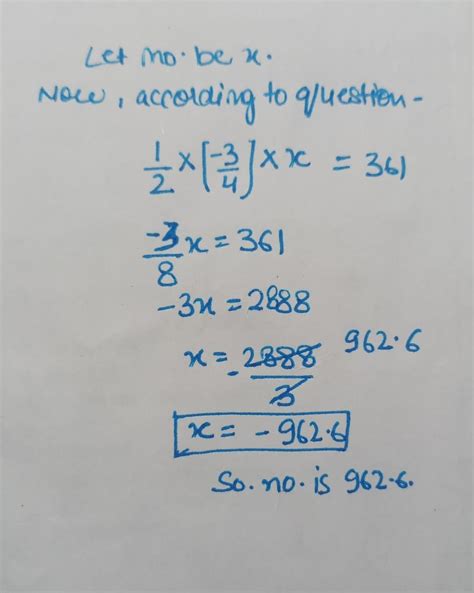 Let no. be x.
Now, according to question -
1/2 × [-3/4] × x = 361
-3/8 x = 361
-3x = 2888
x = - 2888/3 962.6
x = - 962.6
So. no. is 962.6.